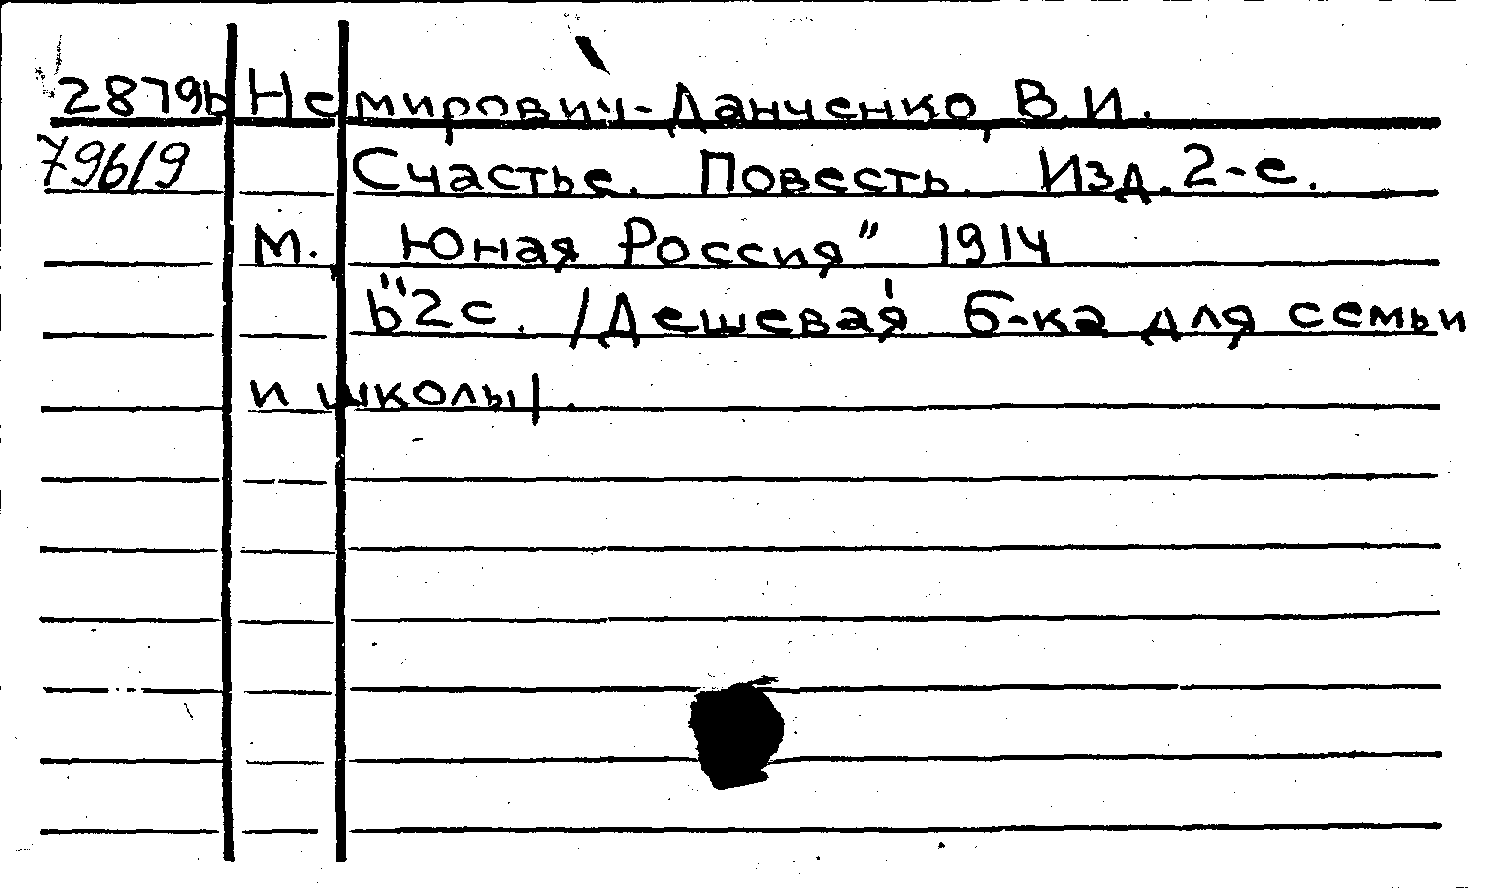 28796 Немирович-Данченко, В.И.
79619 Счастье. Повесть. Изд. 2-е.
М. "Юная Россия" 1914
62 с. /Дешевая б-ка для семьи
и школы/.